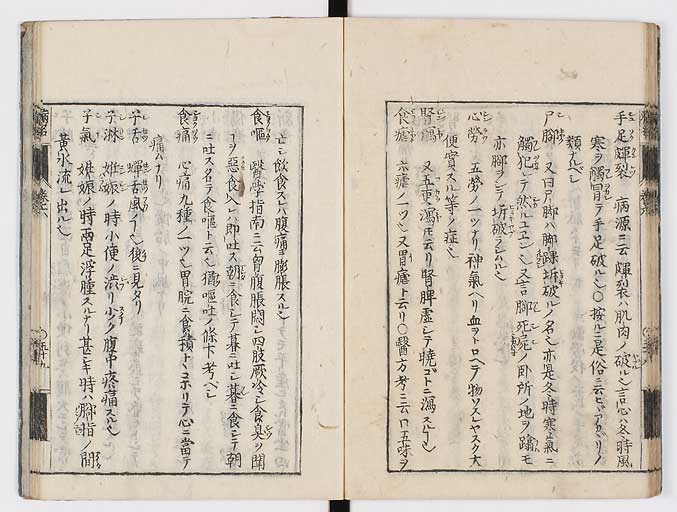 手足皹裂 病源ニ云皹裂ハ肌肉ノ破ル也言心ハ冬時風
寒ヲ觸冒シテ手足破ル也○按ルニ是俗ニ云ヒビアカガリノ
類ナルベシ
尸脚 又曰尸脚ハ脚踝坼破ルノ名也亦是冬時寒氣ニ
觸犯シテ然ルユエ也又言脚死屍ノ臥所ノ地ヲ踏モ
亦脚ヲシテ坼破ラシムル也
心勞 五勞ノ一ツナリ神氣ヘリ血ヲトロヘテ物ワスレヤスク大
便實スル等ノ症也
腎瀉 又五更瀉𪜈云リ腎脾虚シテ曉ゴトニ瀉スルナリ
食瘧 六瘧ノ一ツ也又胃瘧ト云リ○醫方考ニ云口五味ヲ
亡シ飲食スレバ腹痛シ膨脹スル也
食嘔 醫學指南ニ云胷腹脹悶シ四肢厥冷シ食ノ臭ヲ聞
テヲ惡食入レバ即吐ス朝ニ食シテ暮ニ吐シ暮ニ食シテ朝
ニ吐ス名テ食嘔ト云也猶嘔吐ノ條下考ベシ
食痛 心痛九種ノ一ツ也胃脘ニ食積トヾコホリテ心ニ當テ
痛ハナリ
子舌 蟬舌風ノ也後ニ見タリ
子淋 姙娠ノ時小便ノ澁リ少ク腹中疼痛スル也
子氣 姙娠ノ時兩足浮腫スルナリ甚シキ時ハ脚指ノ間
黄水流レ出ル也
病名
巻六
五十九